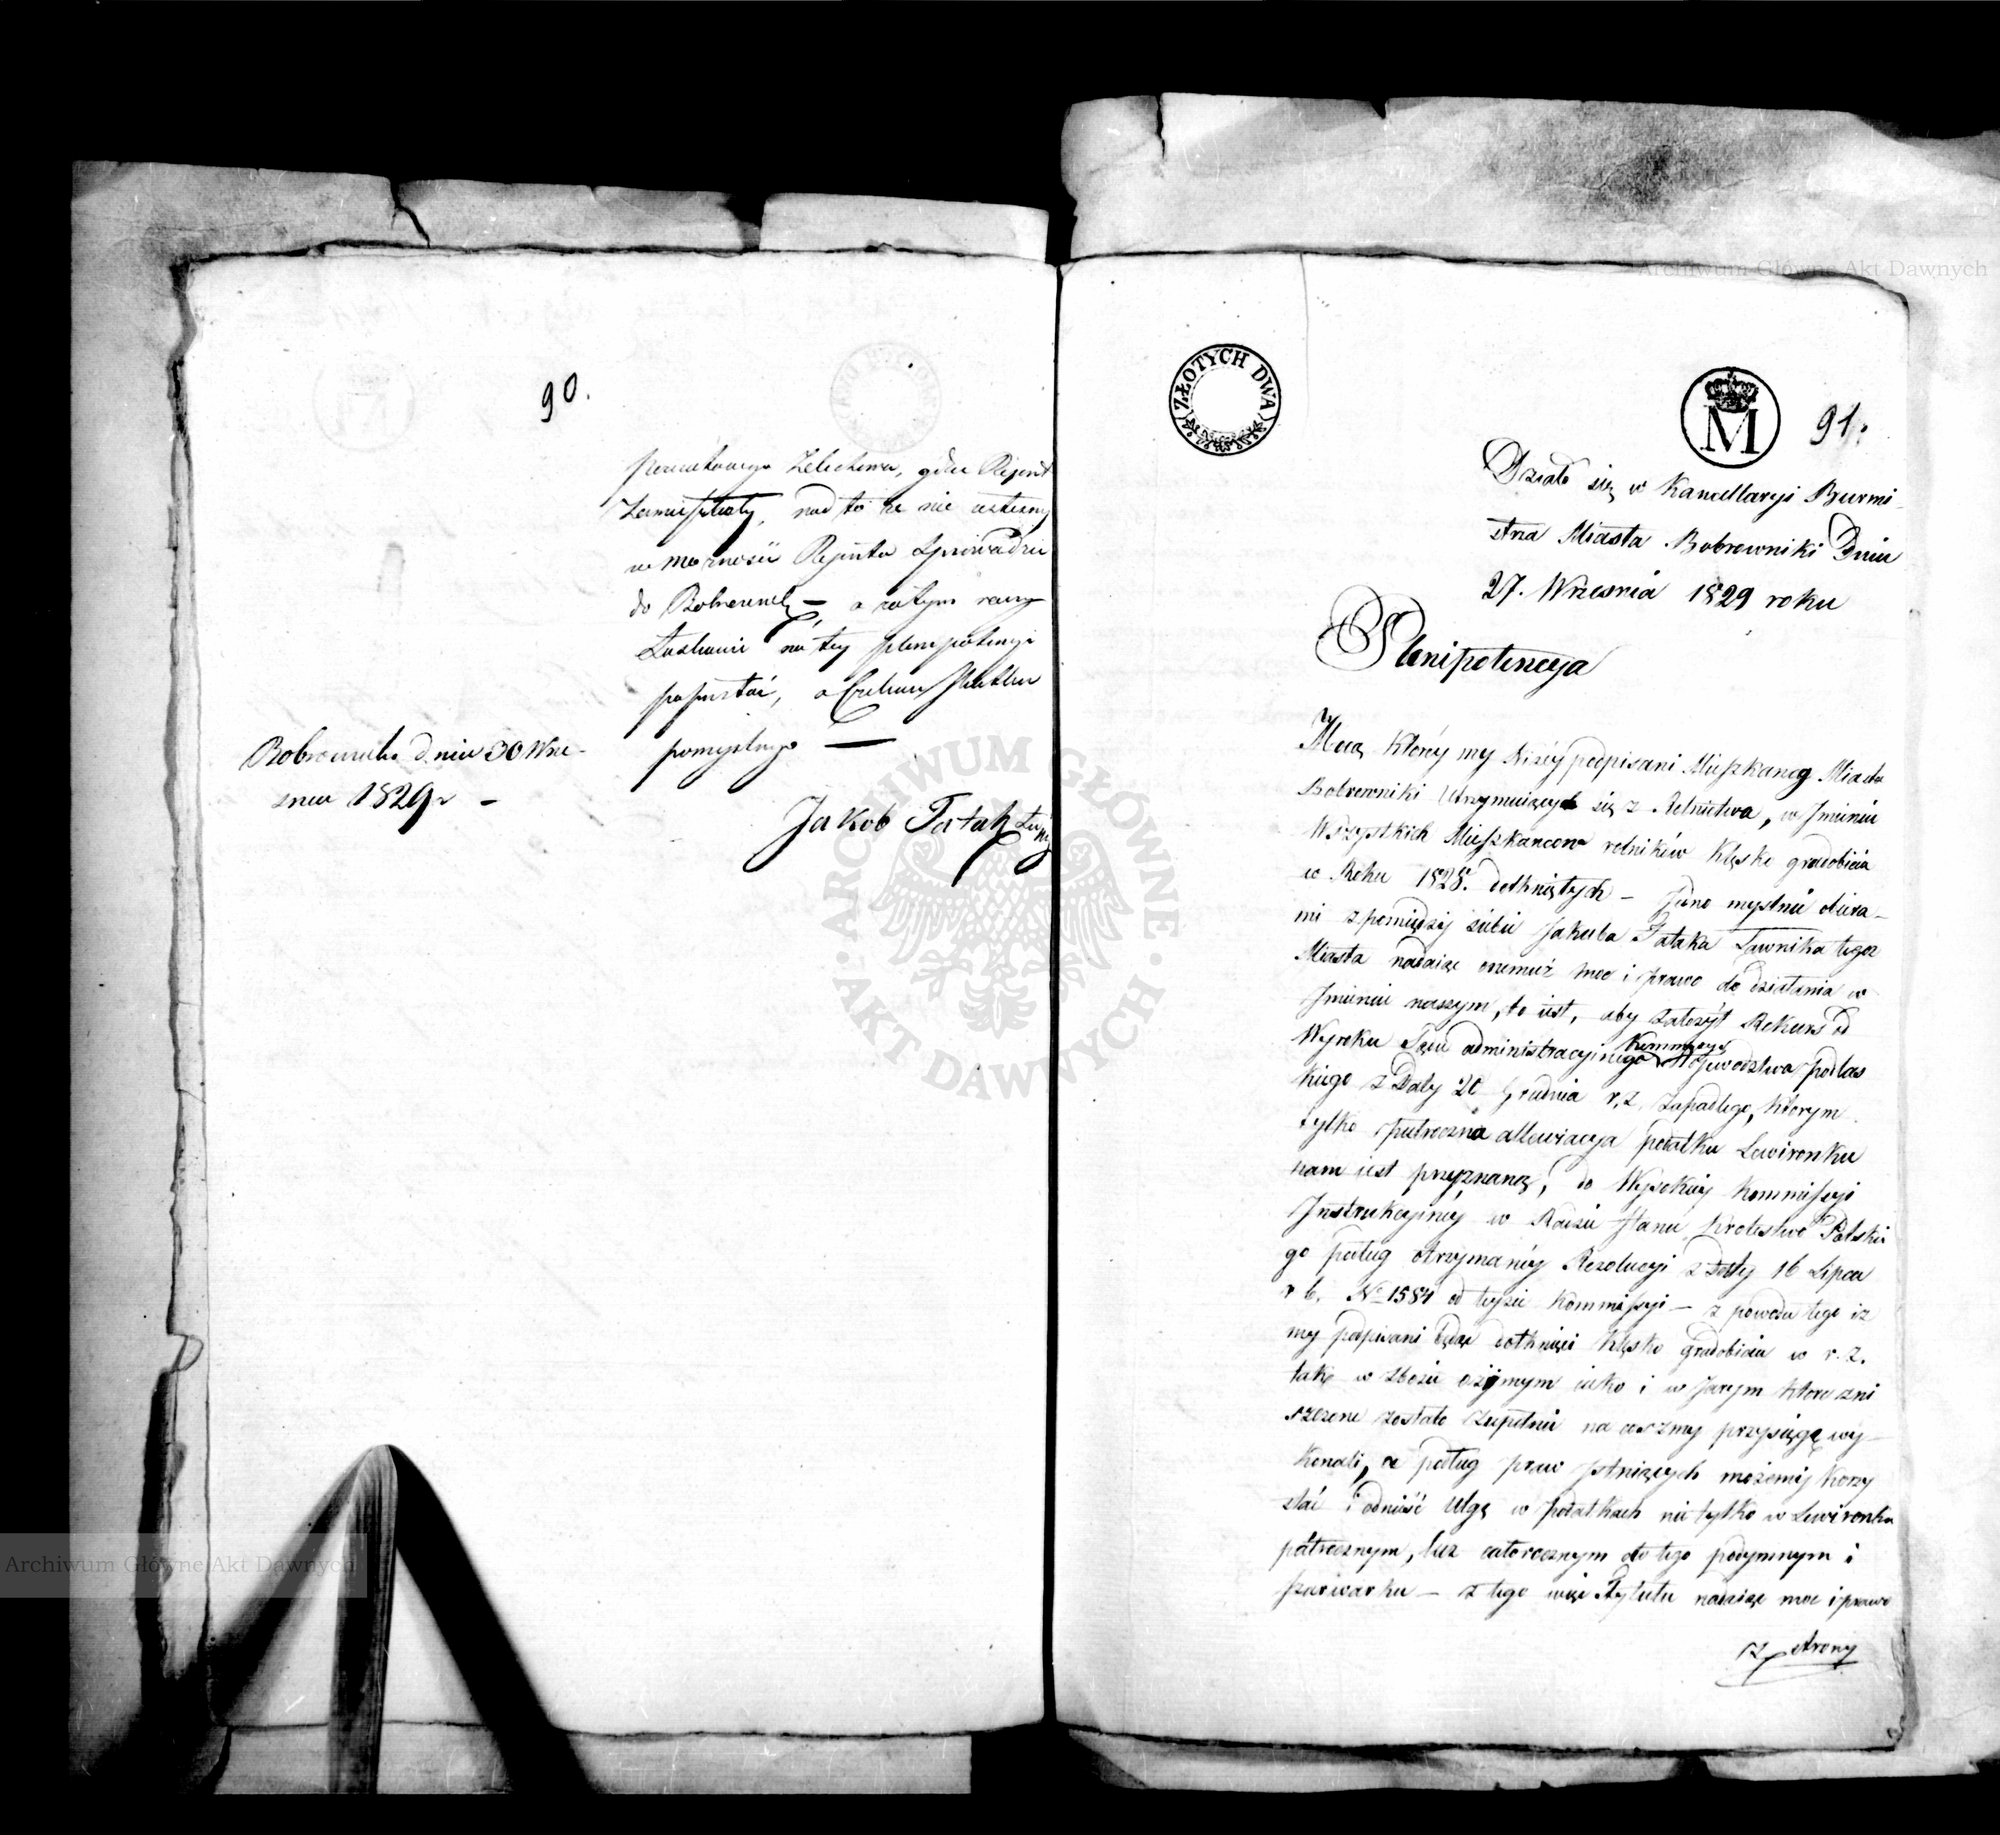 90.
powiatowego Żelechowa, gdzie Rejent
Zamieszkały, nad to że nie
w możności Rejenta Sprowadzić
do Bobrownik — a zatym raczy
Łaskawie na tey plenipotencyi
poprzestać, a
pomyślnego —
Bobrowniki dniu 30 Wrze-
śnia 1829 r —
Jakob Tatak
ZŁOTYCH DWA
M
91.
Działo się w Kancellaryi Burmi
strza Miasta Bobrowniki Dniu
27. Września 1829 roku
Plenipotencya
Mocą któréy my Niżéy podpisani Mieszkancy Miasta
Bobrowniki Utrzymuiących się z Rolnictwa, w Jmieniu
Wszystkich Mieszkancow rolników klęsko gradobicia
w Roku 1828. dotkniętych — Jedno myślnie obiera-
mi z pomiędzy siebie Jakuba Tataka Ławnika tegoż
Miasta nadaiąc onemuż moc i prawo do działania w
Jmieniu naszym, to iest, aby założył Rekurs od
Wyroku Sądu administracyinego Kommissyi Wojewodztwa podlas
kiego z Daty 20 Grudnia r. z. Zapadłego, ktorym
tylko pułroczna allewiacya podatku Liwerunku
nam iest przyznaną, do Wysokiey Kommissyi
Jnstrukcyiney w Radzie Stanu Krolestwa Polskie
go podług otrzymanéy Rezolucyi z Daty 16 Lipca
r b. No 1584 od teyże Kommissyi — z powodu tego iż
my podpisani będąc dotknięci klęsko gradobicia w r. z.
tak w zbożu ozimym iako i w Jarym ktore zni
szczone zostało zupełnie na co zmy przysięgę wy-
konali, a podług praw istnieiących możemy korzy
stać i odnieść ulgę w podatkach nie tylko w Liwerunku
półrocznym, lecz całorocznym do tego podymnym i
szarwarku — z tego więc Tytułu nadaiąc moc i prawo
strony
ARCHIWUM GŁÓWNE AKT DAWNYCH
Archiwum Główne Akt Dawnych
Archiwum Główne Akt Dawnych